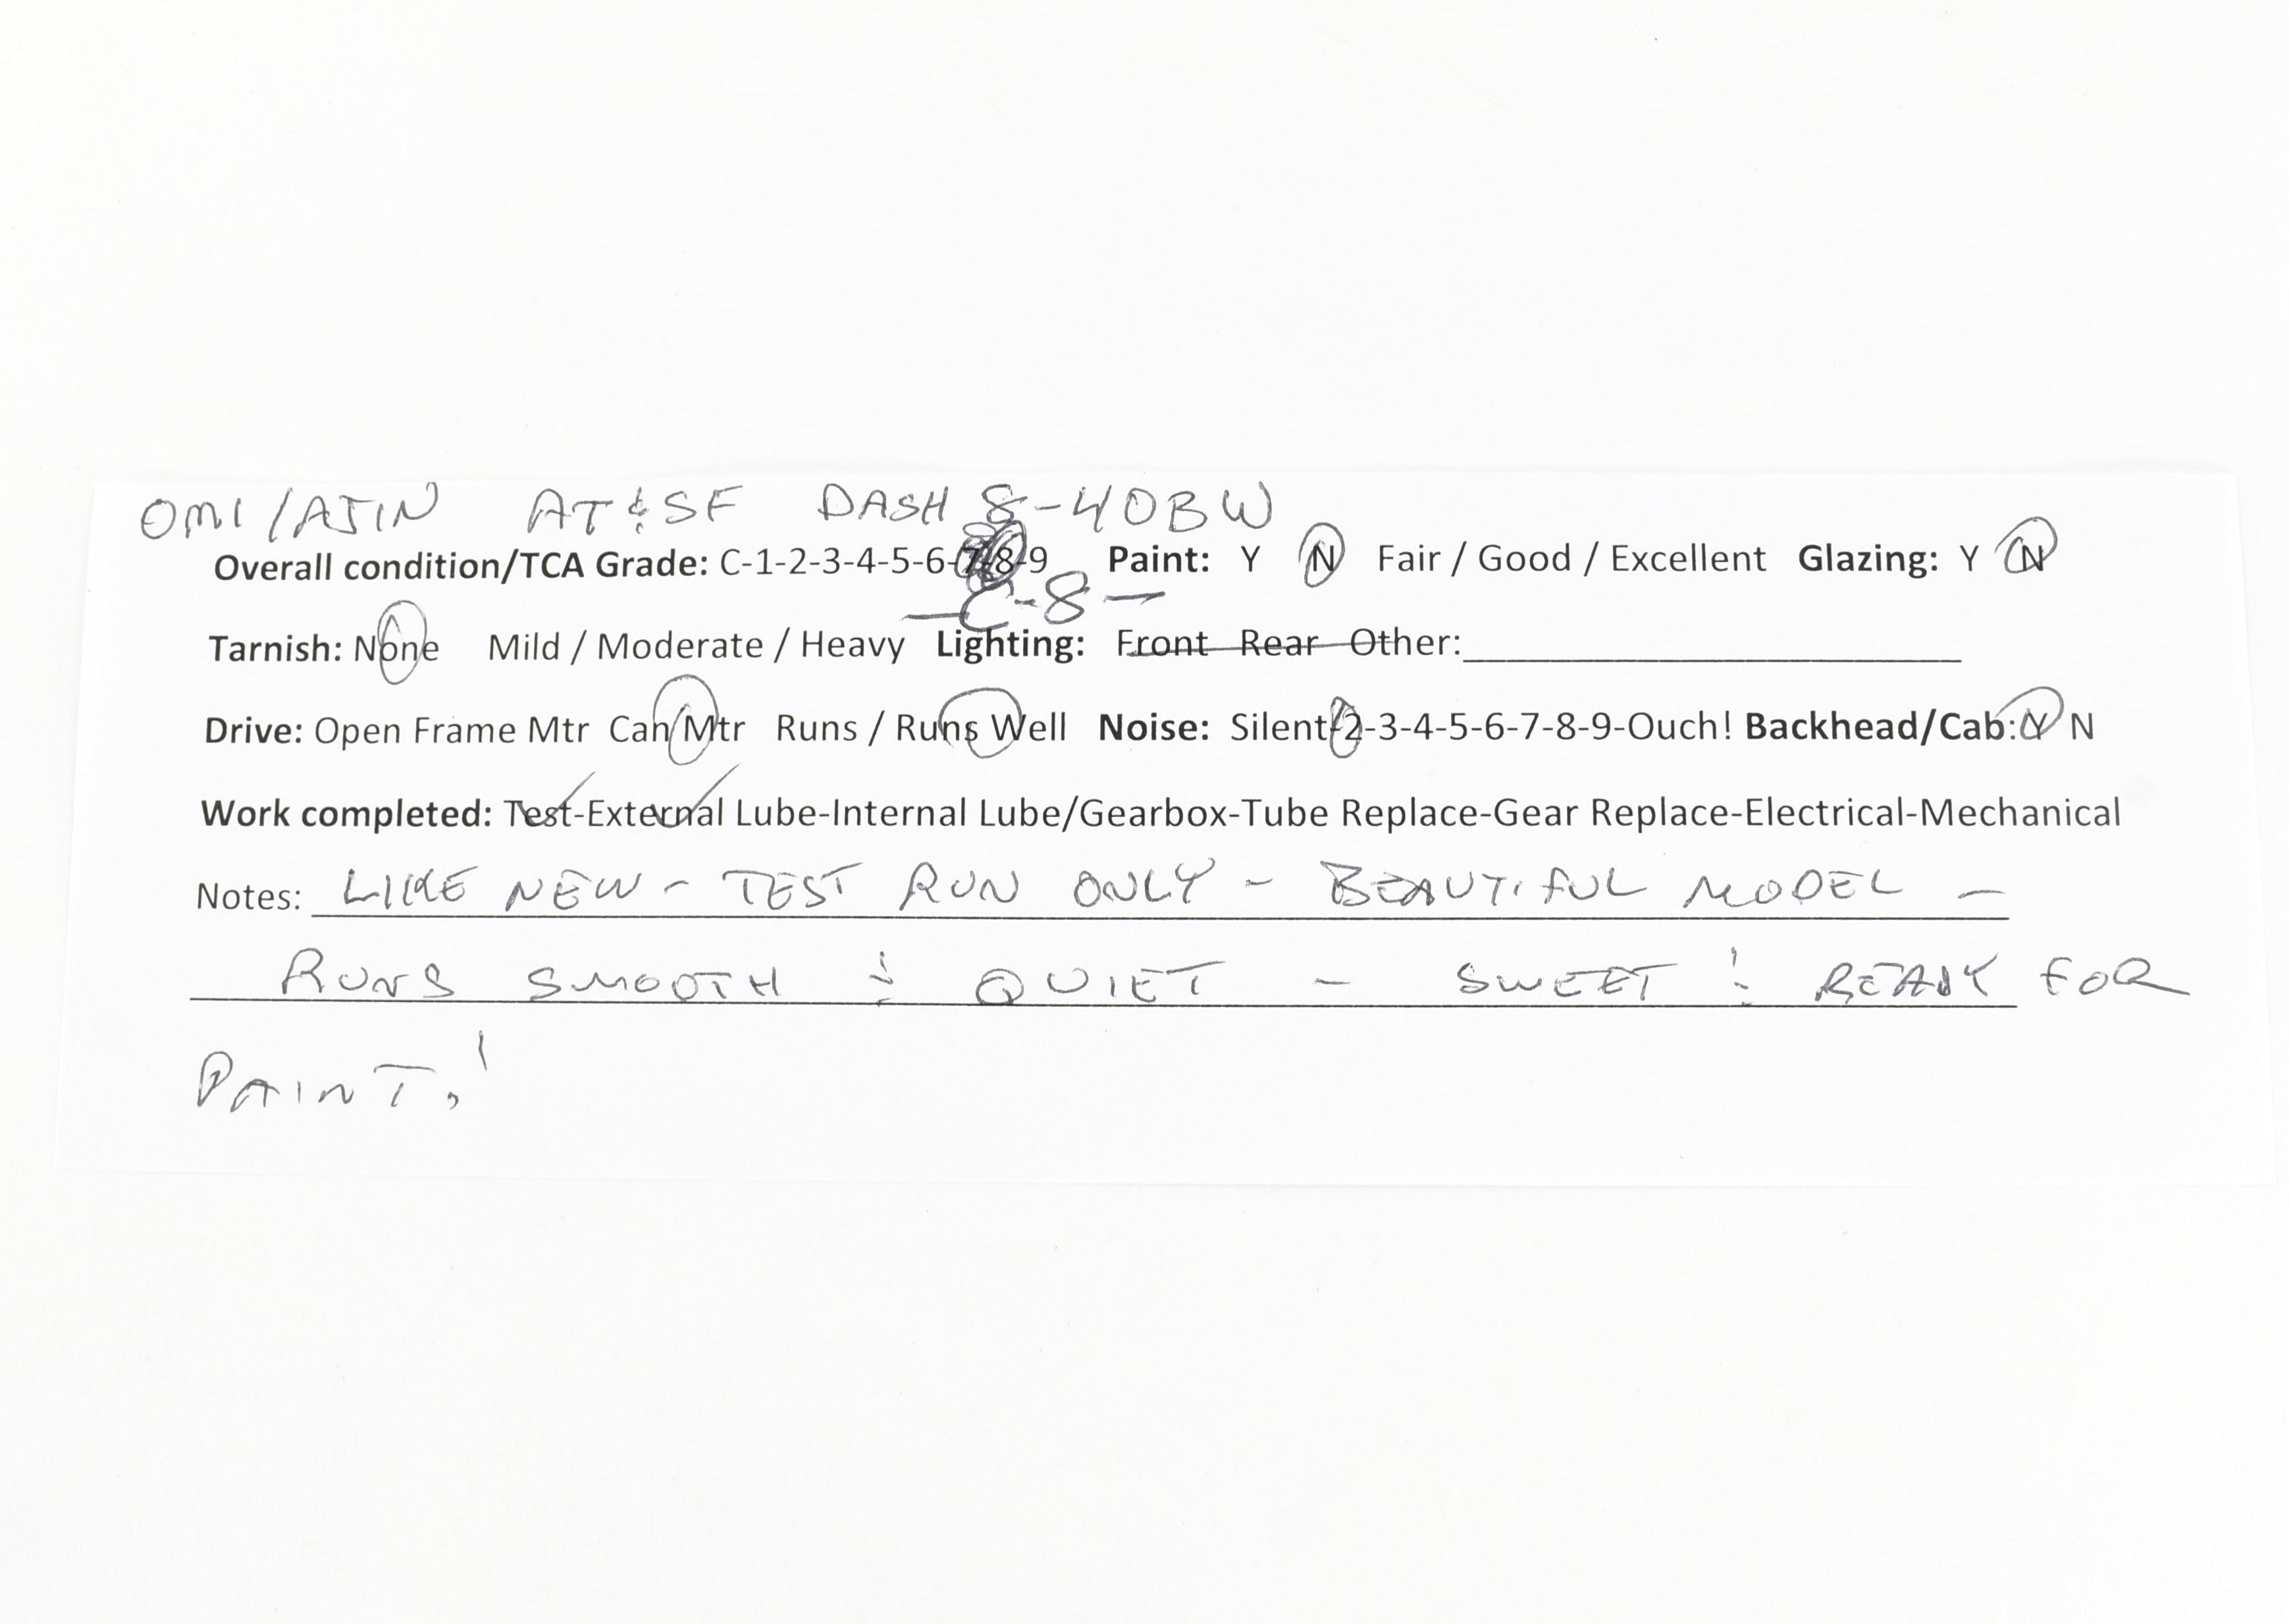 OMI/AJIN AT&SF DASH 8-40BW
Overall condition/TCA Grade: C-1-2-3-4-5-6-7-8-9 Paint: Y N Fair / Good / Excellent Glazing: Y N
-C-8-
Tarnish: None Mild / Moderate / Heavy Lighting: Front Rear Other:
Drive: Open Frame Mtr Can Mtr Runs / Runs Well Noise: Silent-2-3-4-5-6-7-8-9-Ouch! Backhead/Cab: Y N
Work completed: Test-External Lube-Internal Lube/Gearbox-Tube Replace-Gear Replace-Electrical-Mechanical
Notes: LIKE NEW - TEST RUN ONLY - BEAUTIFUL MODEL -
RUNS SMOOTH & QUIET - SWEET! READY FOR
PAINT!